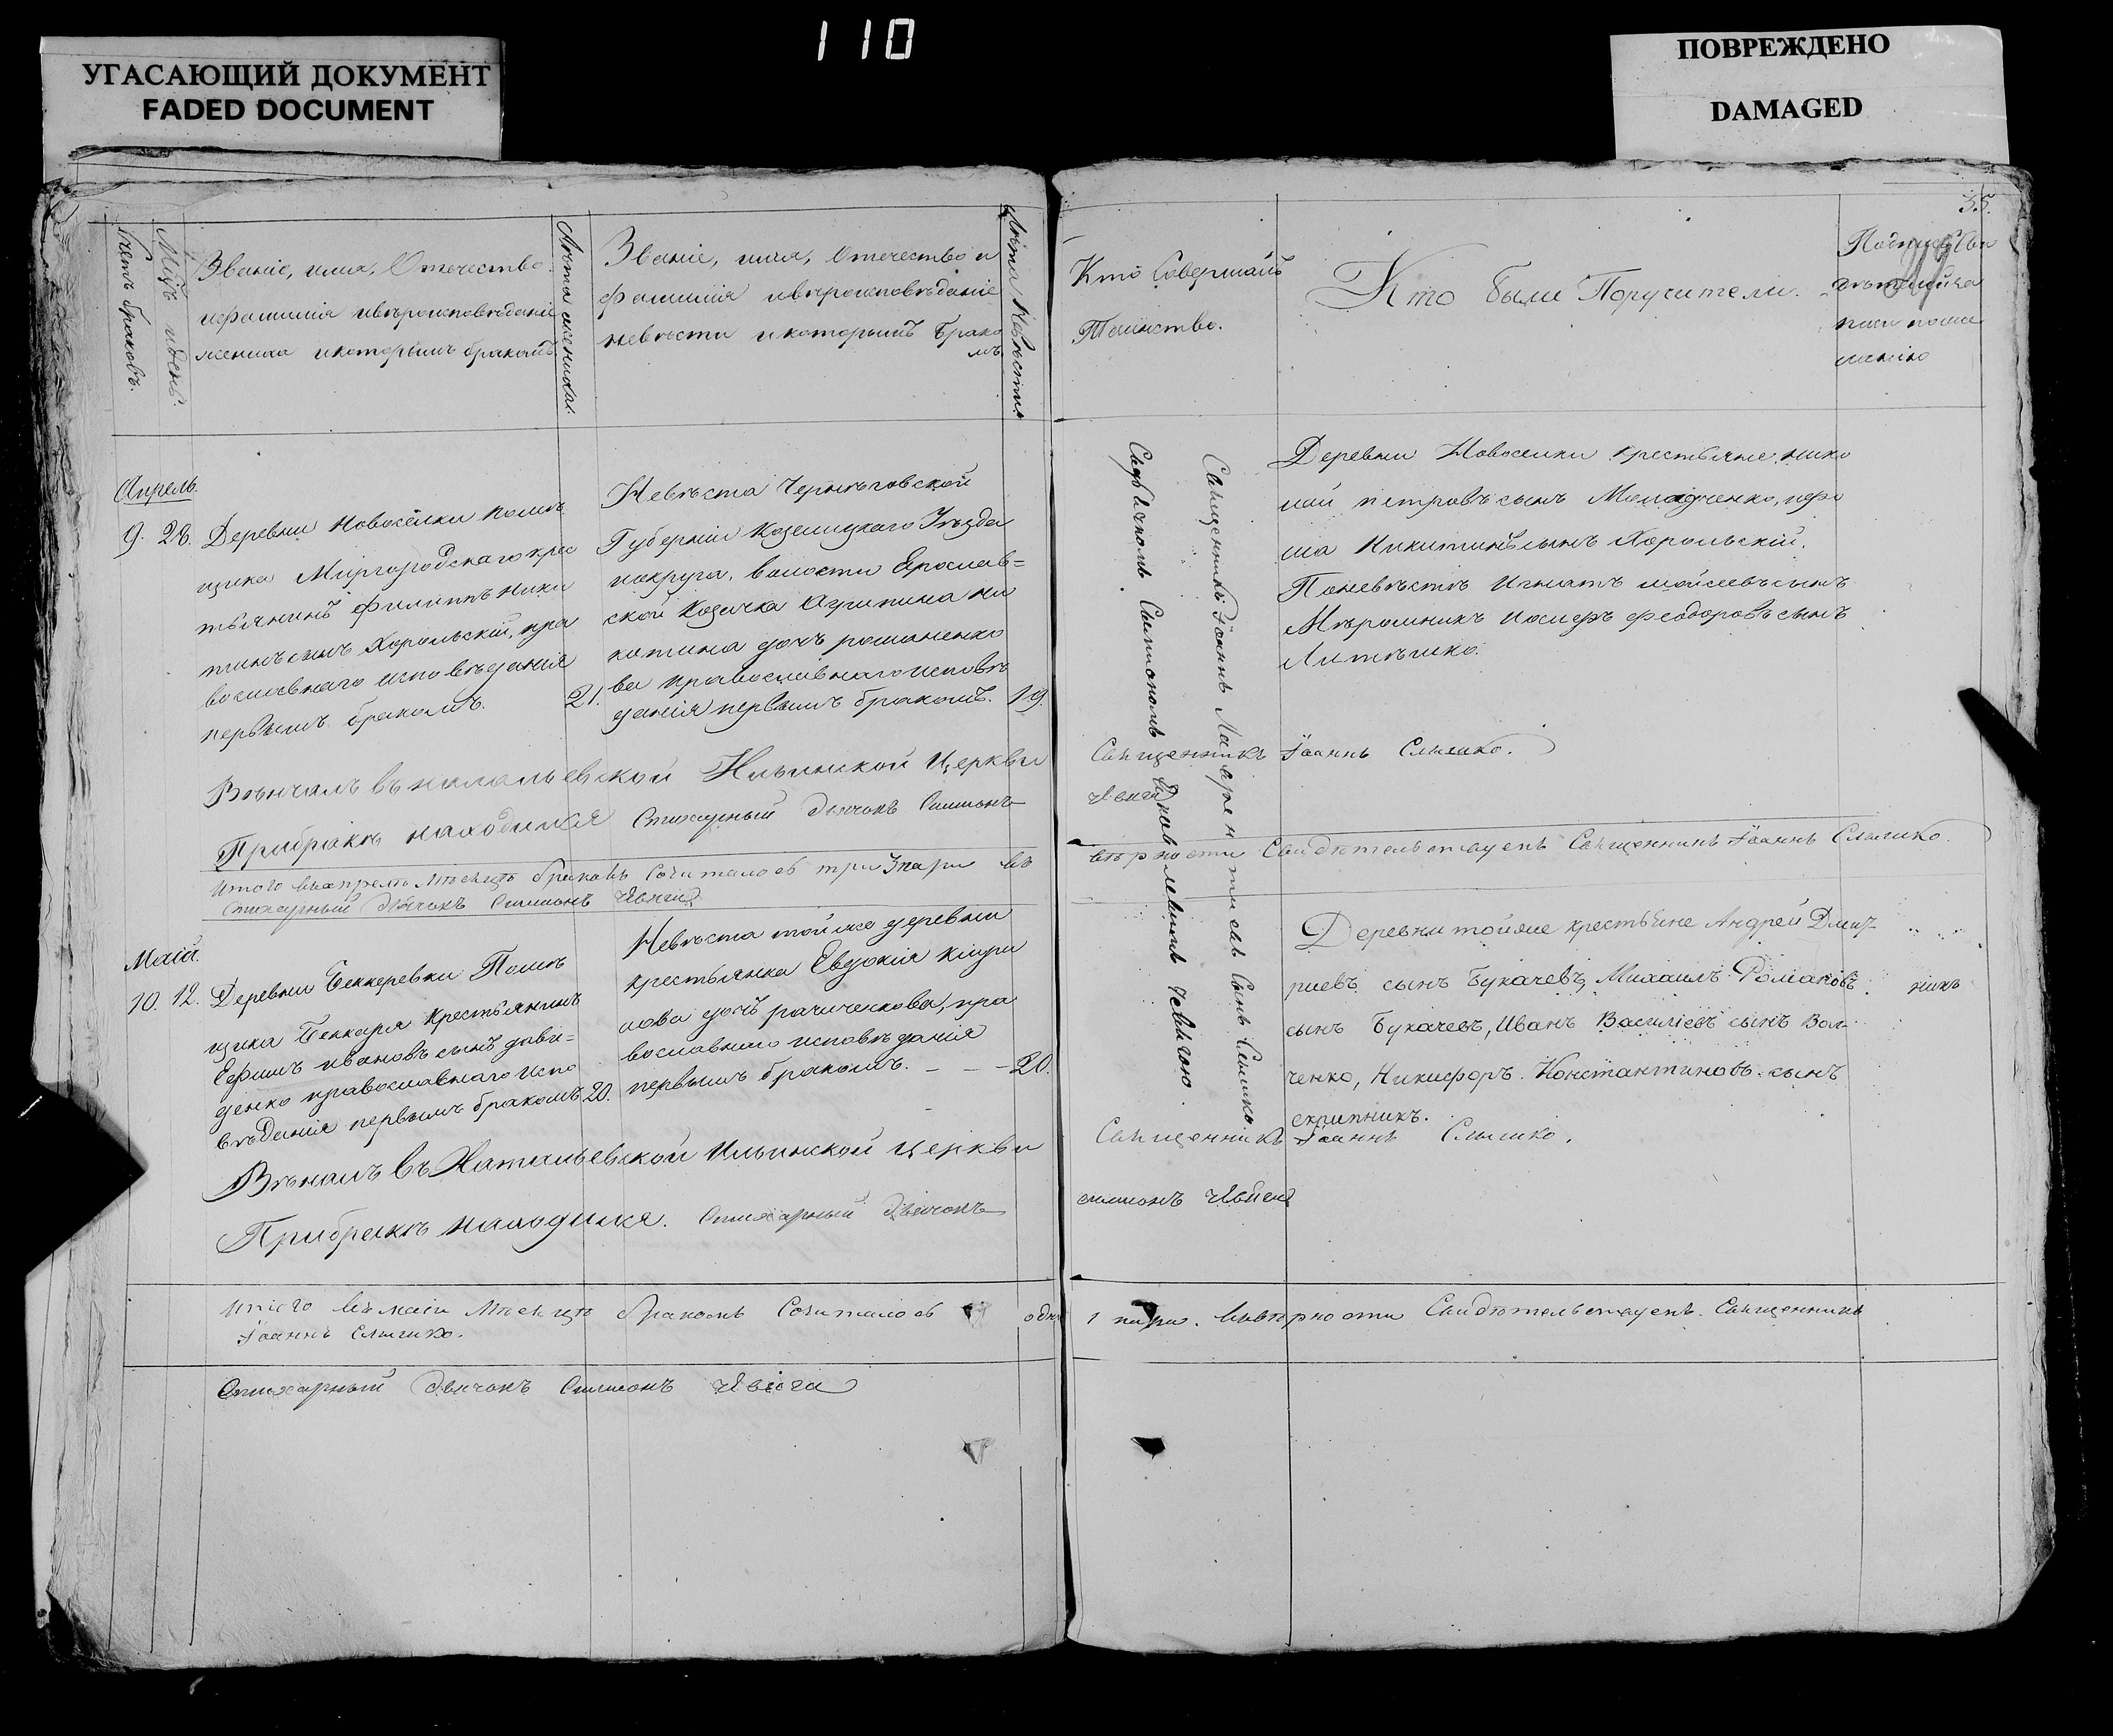 110
УГАСАЮЩИЙ ДОКУМЕНТ
FADED DOCUMENT
ПОВРЕЖДЕНО
DAMAGED
35.
Счетъ браковъ.
Мѣцъ и день.
Званіе, имя, Отечество
и фамилія и вѣроисповѣданіе
жениха и которымъ бракомъ
Лѣта жениха.
Званіе, имя, Отечество и
фамилія и вѣроисповѣданіе
невѣсты и которымъ брако
мъ
Лѣта Невѣсты
Кто Совершалъ
Таинство.
Кто были Поручители.
Апрель.
9. 28. Деревни Новоселки помѣ
щика Миргородскаго крес
тьянинъ Филиппъ Ники
тинъ сынъ Хорольскій, пра
вославнаго исповѣданія
первымъ бракомъ. 21.
Невѣста Черниговской
Губерніи Козелицкаго Уѣзда
и округа, волости Ярослав=
ской Козачка Агрипина Ни
китина дочь романенко
ва православнаго исповѣ
данія первымъ бракомъ. 19.
Священникъ Іоаннъ Лаврентіевъ Сынъ Слышко
Съ дьячкомъ Симиономъ Яковлевымъ Чевягою
Деревни Новоселки крестьяне нико
лай петровъ сынъ Молодченко, пефо
ма Никитинъ сынъ Хорольскій.
По невѣстѣ Игнатъ мойсеевъ сынъ
Мѣрошникъ Иосифъ феодоровъ сынъ
Литвинко.
Вѣнчалъ въ наталиевской Ильинской Церкви Священникъ Іоаннъ Слышко.
При бракѣ находился Стихарный Дьячокъ Симионъ Чвяга
Итого въ апрелѣ Мѣсяцѣ браковъ Сочиталось три 3 пари въ вѣрности Свидѣтельствуетъ Священникъ Іоаннъ Слышко.
Стихарный Дьячокъ Симионъ Чвяга
Маій.
10. 12. Деревни Беккеревки Помѣ
щика Беккаря Крестьянинъ
Ефимъ ивановъ сынъ дави=
денко православнаго испо
вѣданія первымъ бракомъ 20.
Невѣста той же деревни
крестьянка Евдокія Кіри
лова дочь рагиченкова, пра
вославнаго исповѣданія
первымъ бракомъ. - - - 20.
Деревни той же крестьяне Андрей Дмит
риевъ сынъ Букачевъ, Михаилъ Романовъ
сынъ Букачевъ, Иванъ Василіевъ сынъ Вол
ченко, Никифоръ Константиновъ сынъ
скрипникъ.
Вѣнчалъ въ Наталиевской Ильинской Церкви Священникъ Іоаннъ Слышко.
При бракѣ находился. Стихарный Дьячокъ симионъ Чвяга
Итого въ маіи Мѣсяцѣ бракомъ Сочиталось одна 1 пара. въ вѣрности Свидѣтельствуетъ Священникъ
Іоаннъ Слышко.
Стихарный Дьячокъ Симионъ Чвяга